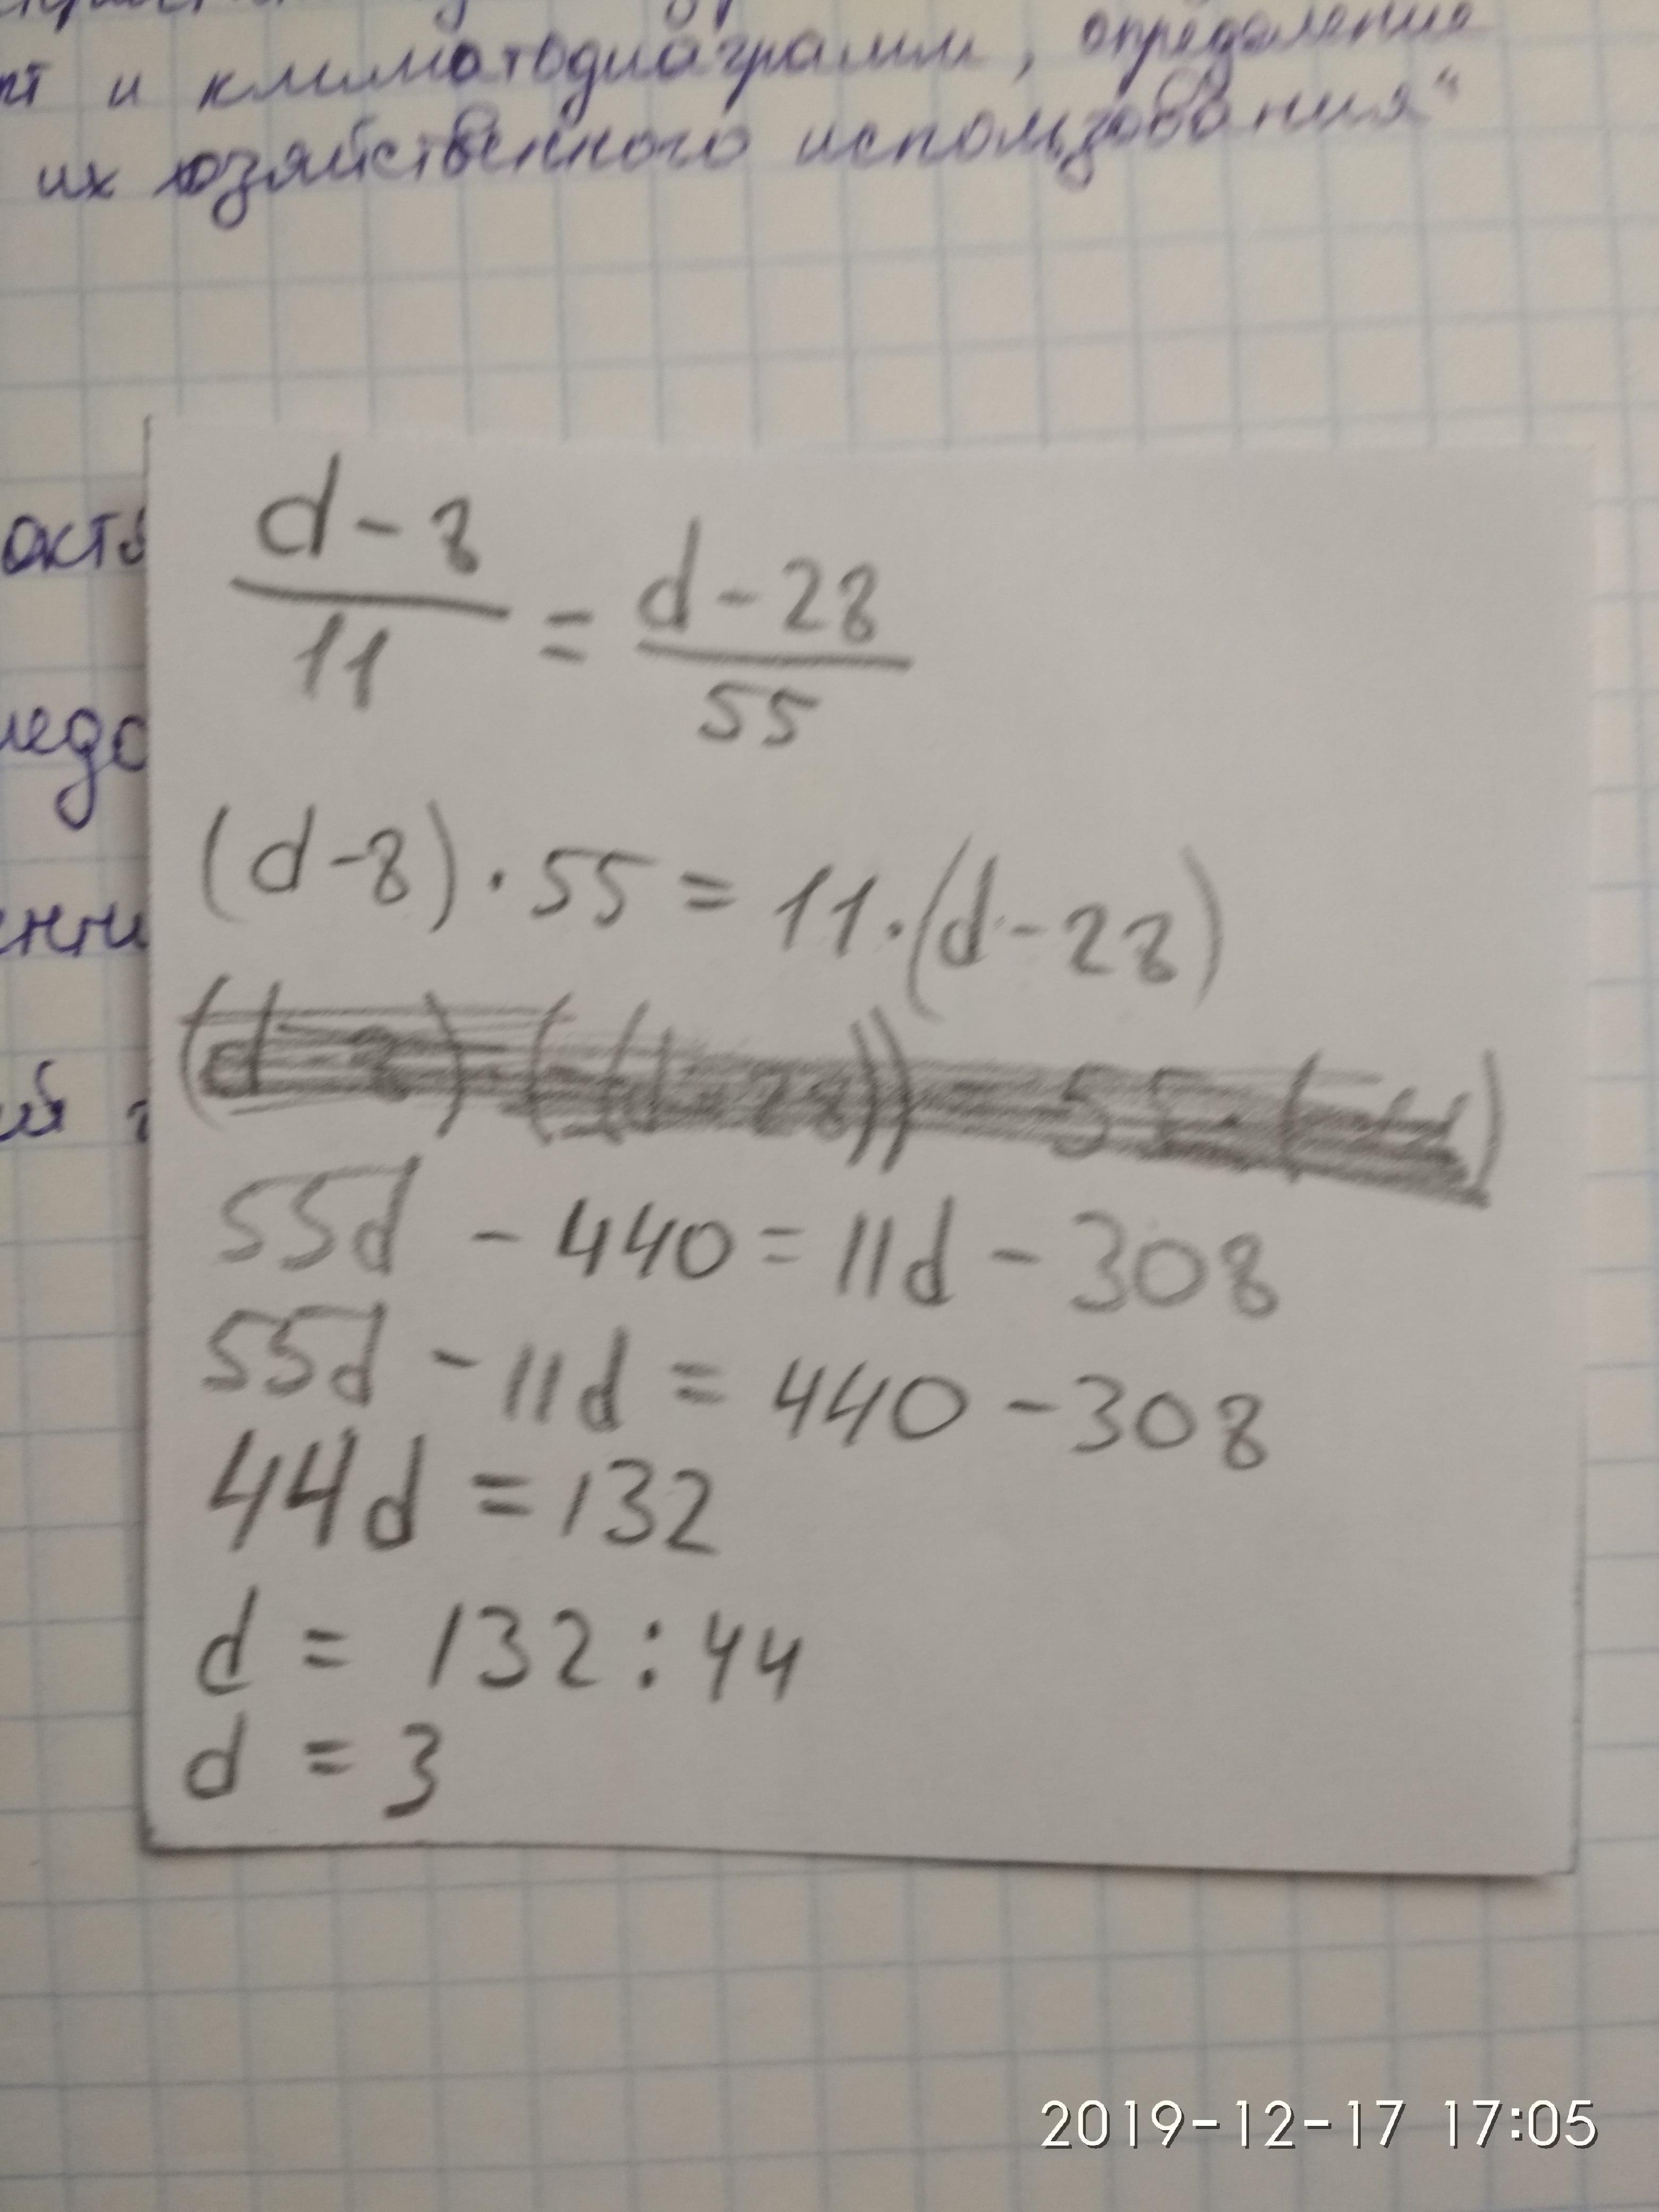 и климатодиаграмм, определение
их хозяйственного использования"
d - 8 / 11 = d - 28 / 55
(d - 8) · 55 = 11 · (d - 28)
55d - 440 = 11d - 308
55d - 11d = 440 - 308
44d = 132
d = 132 : 44
d = 3
2019-12-17 17:05